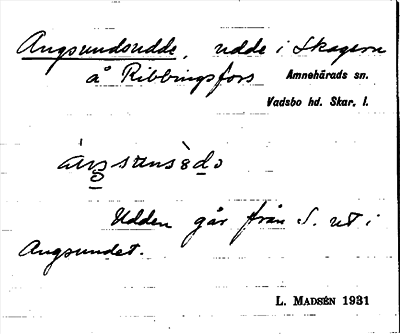 Angsundsudde, udde i Skagern
å Ribbingsfors Amnehärads sn.
Vadsbo hd. Skar. l.
Udden går från S. ut i
Angsundet.
L. MADSÉN 1931